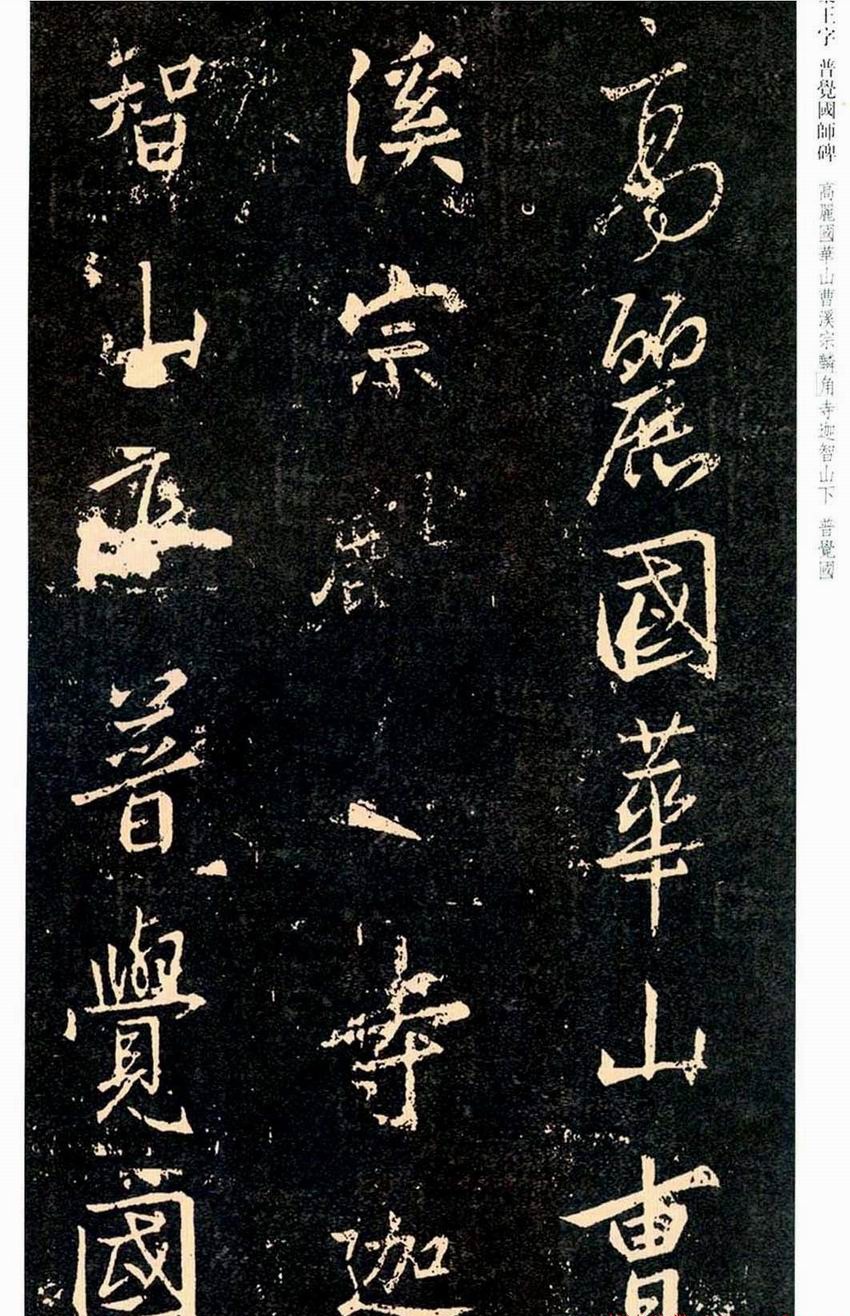 王字 普覺國師碑 高麗國華山曹溪宗麟角寺迦智山下 普覺國
高麗國華山曹
溪宗麟寺迦
智山下普覺國